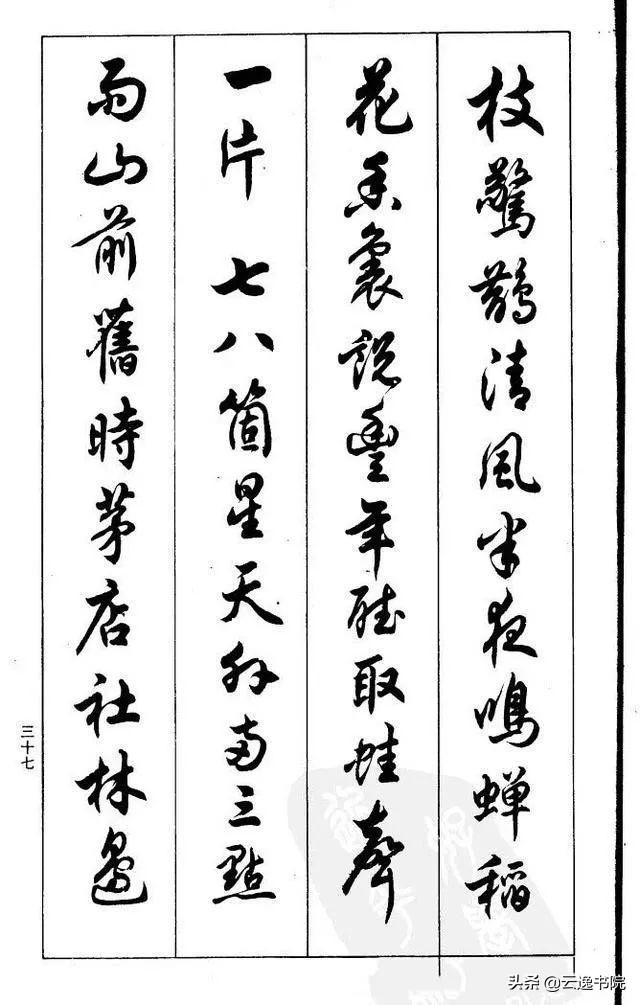 枝驚鵲清風半夜鳴蟬稻
花香裏說豐年聽取蛙聲
一片 七八箇星天外兩三點
雨山前舊時茅店社林邊
三十七
头条 @云逸书院